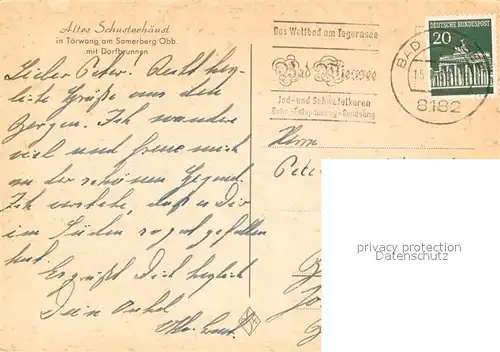 Altes Schusterhäusl
in Törwang am Samerberg Obb.
mit Dorfbrunnen
Lieber Peter! Recht herz-
liche Grüße aus den
Bergen. Ich wandere
viel und freue mich
an der schönen Gegend.
Ich verstehe, daß es Dir
im Süden so gut gefallen
hat.
Es grüßt Dich herzlich
Dein Onkel
Das Weltbad am Tegernsee
Bad Wiessee
Jod- und Schwefelkuren
Ruhe-Entspannung-Genesung
BAD
15.
8182
DEUTSCHE BUNDESPOST
20
Herrn
Peter
privacy protection